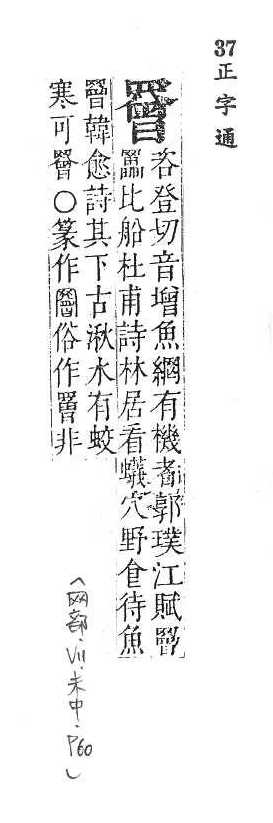 37正字通
罾
咨登切音增魚網有機者郭璞江賦罾
比船杜甫詩林居看蟻穴野食待魚
罾韓愈詩其下古湫水有蛟
寒可罾○篆作俗作罾非
(网部·VII·未中·P60)